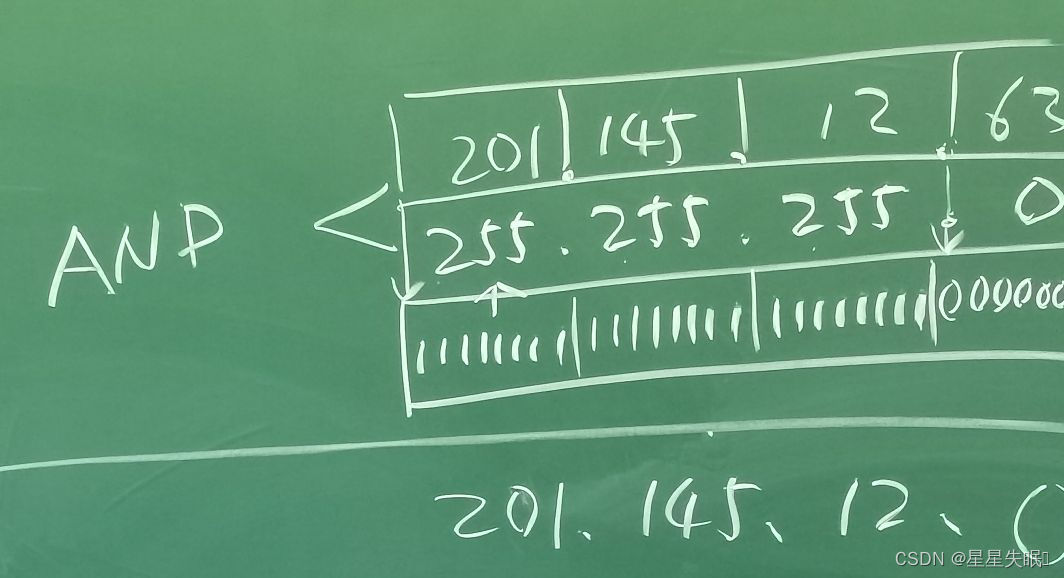 201 145 12 63
AND
255.255.255 0
11111111 11111111 11111111 000000
201.145.12.0
CSDN @星星失眠